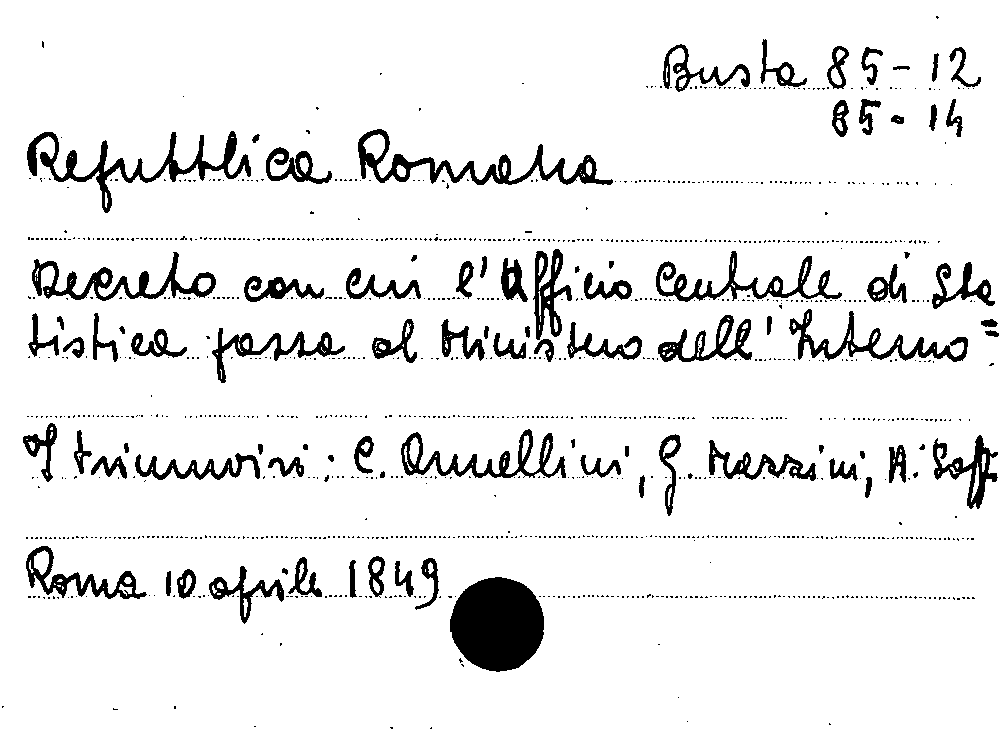 Busta 85-12
85-14
Repubblica Romana
Decreto con cui l'Ufficio Centrale di Sta
tistica passa al Ministero dell'Interno=
I triumviri: C. Armellini, G. Mazzini, A. Saff.
Roma 10 aprile 1849